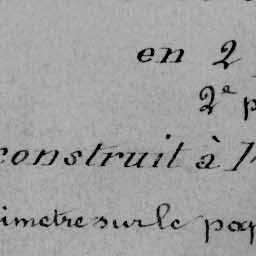 en 2
2e p
construit à l
imetre sur le pap